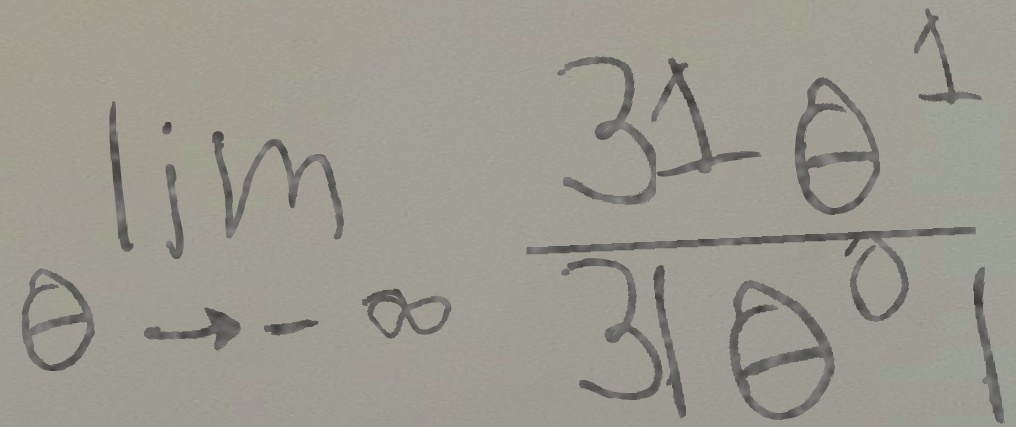 lim 31 θ^1
θ → - ∞ 3|θ^0|